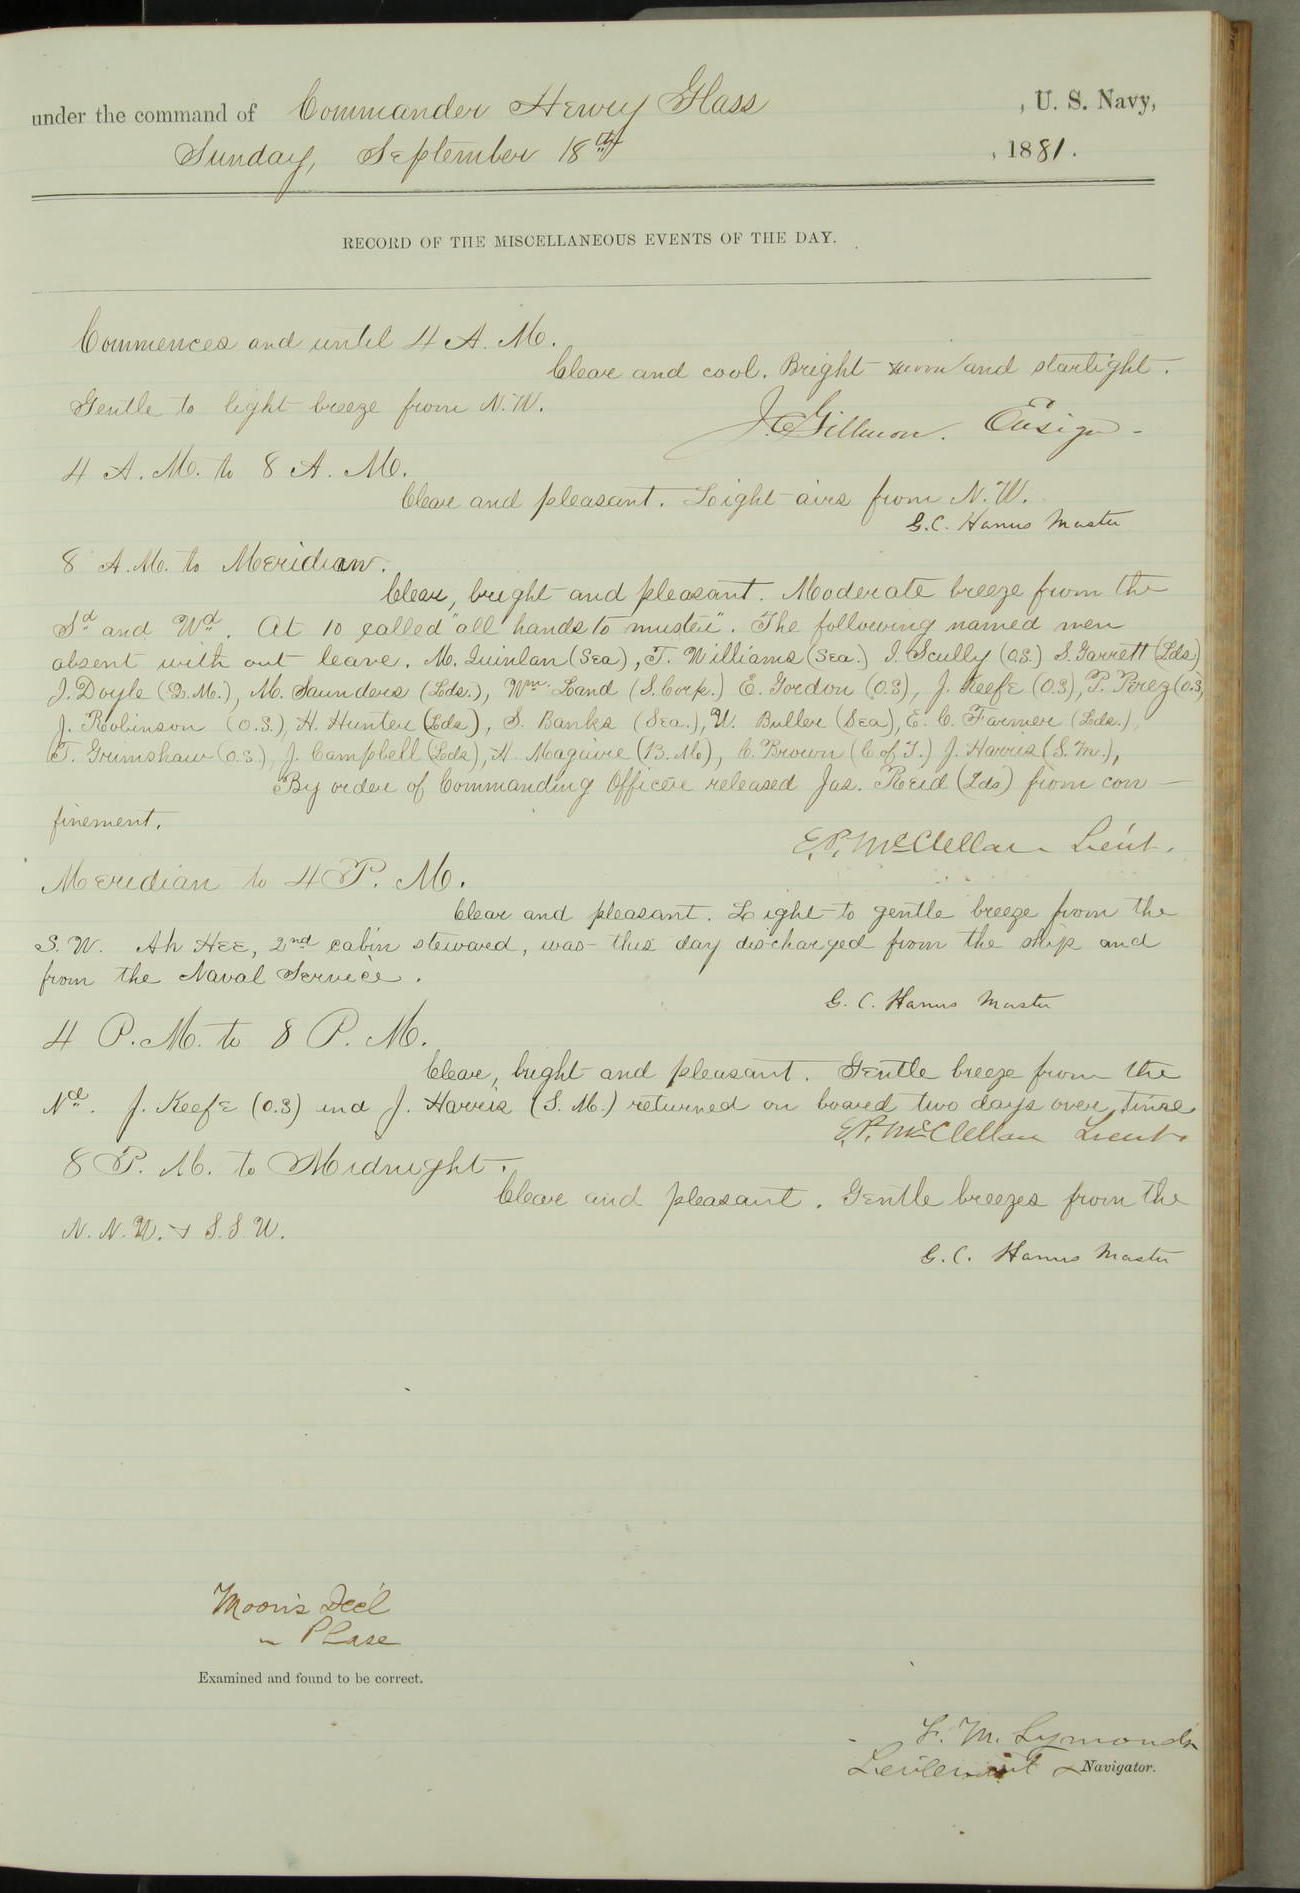 under the command of Commander Henry Glass , U. S. Navy,
Sunday, September 18th , 1881.
RECORD OF THE MISCELLANEOUS EVENTS OF THE DAY.
Commences and until 4 A. M.
Clear and cool. Bright moon and starlight.
Gentle to light breeze from N. W.
J. C. Gillmore. Ensign
4 A. M. to 8 A. M.
Clear and pleasant. Light airs from N. W.
G. C. Hanus Master
8 A. M. to Meridian.
Clear, bright and pleasant. Moderate breeze from the
Sd and Wd. At 10 called "all hands to muster". The following named men
absent with out leave. M. Quinlan (Sea), T. Williams (Sea.) J. Scully (O.S.) S. Garrett (Lds.)
J. Doyle (Q.M.), M. Saunders (Lds.), Wm. Land (S. Corp.) E. Gordon (O.S), J. Keefe (O.S), P. Perez (O.S,
J. Robinson (O.S.), H. Hunter (Lds), S. Banks (Sea.), W. Buller (Sea), E. C. Farmer (Lds.),
T. Grimshaw (O.S.), J. Campbell (Lds), H. Maguire (B.M), C. Brown (C of T.) J. Harris (S.M.),
By order of Commanding Officer released Jas. Reid (Lds) from con-
finement.
E. P. McClellan Lieut.
Meridian to 4 P. M.
Clear and pleasant. Light to gentle breeze from the
S. W. Ah Hee, 2nd cabin steward, was this day discharged from the ship and
from the Naval Service.
G. C. Hanus Master
4 P. M. to 8 P. M.
Clear, bright and pleasant. Gentle breeze from the
Nd. J. Keefe (O.S) and J. Harris (S. M.) returned on board two days over time
E. P. McClellan Lieut.
8 P. M. to Midnight.
Clear and pleasant. Gentle breezes from the
N. N. W. & S. S. W.
G. C. Hanus Master
Moon's Decl
" Phase
Examined and found to be correct.
F. M. Symonds
Lieutenant & Navigator.